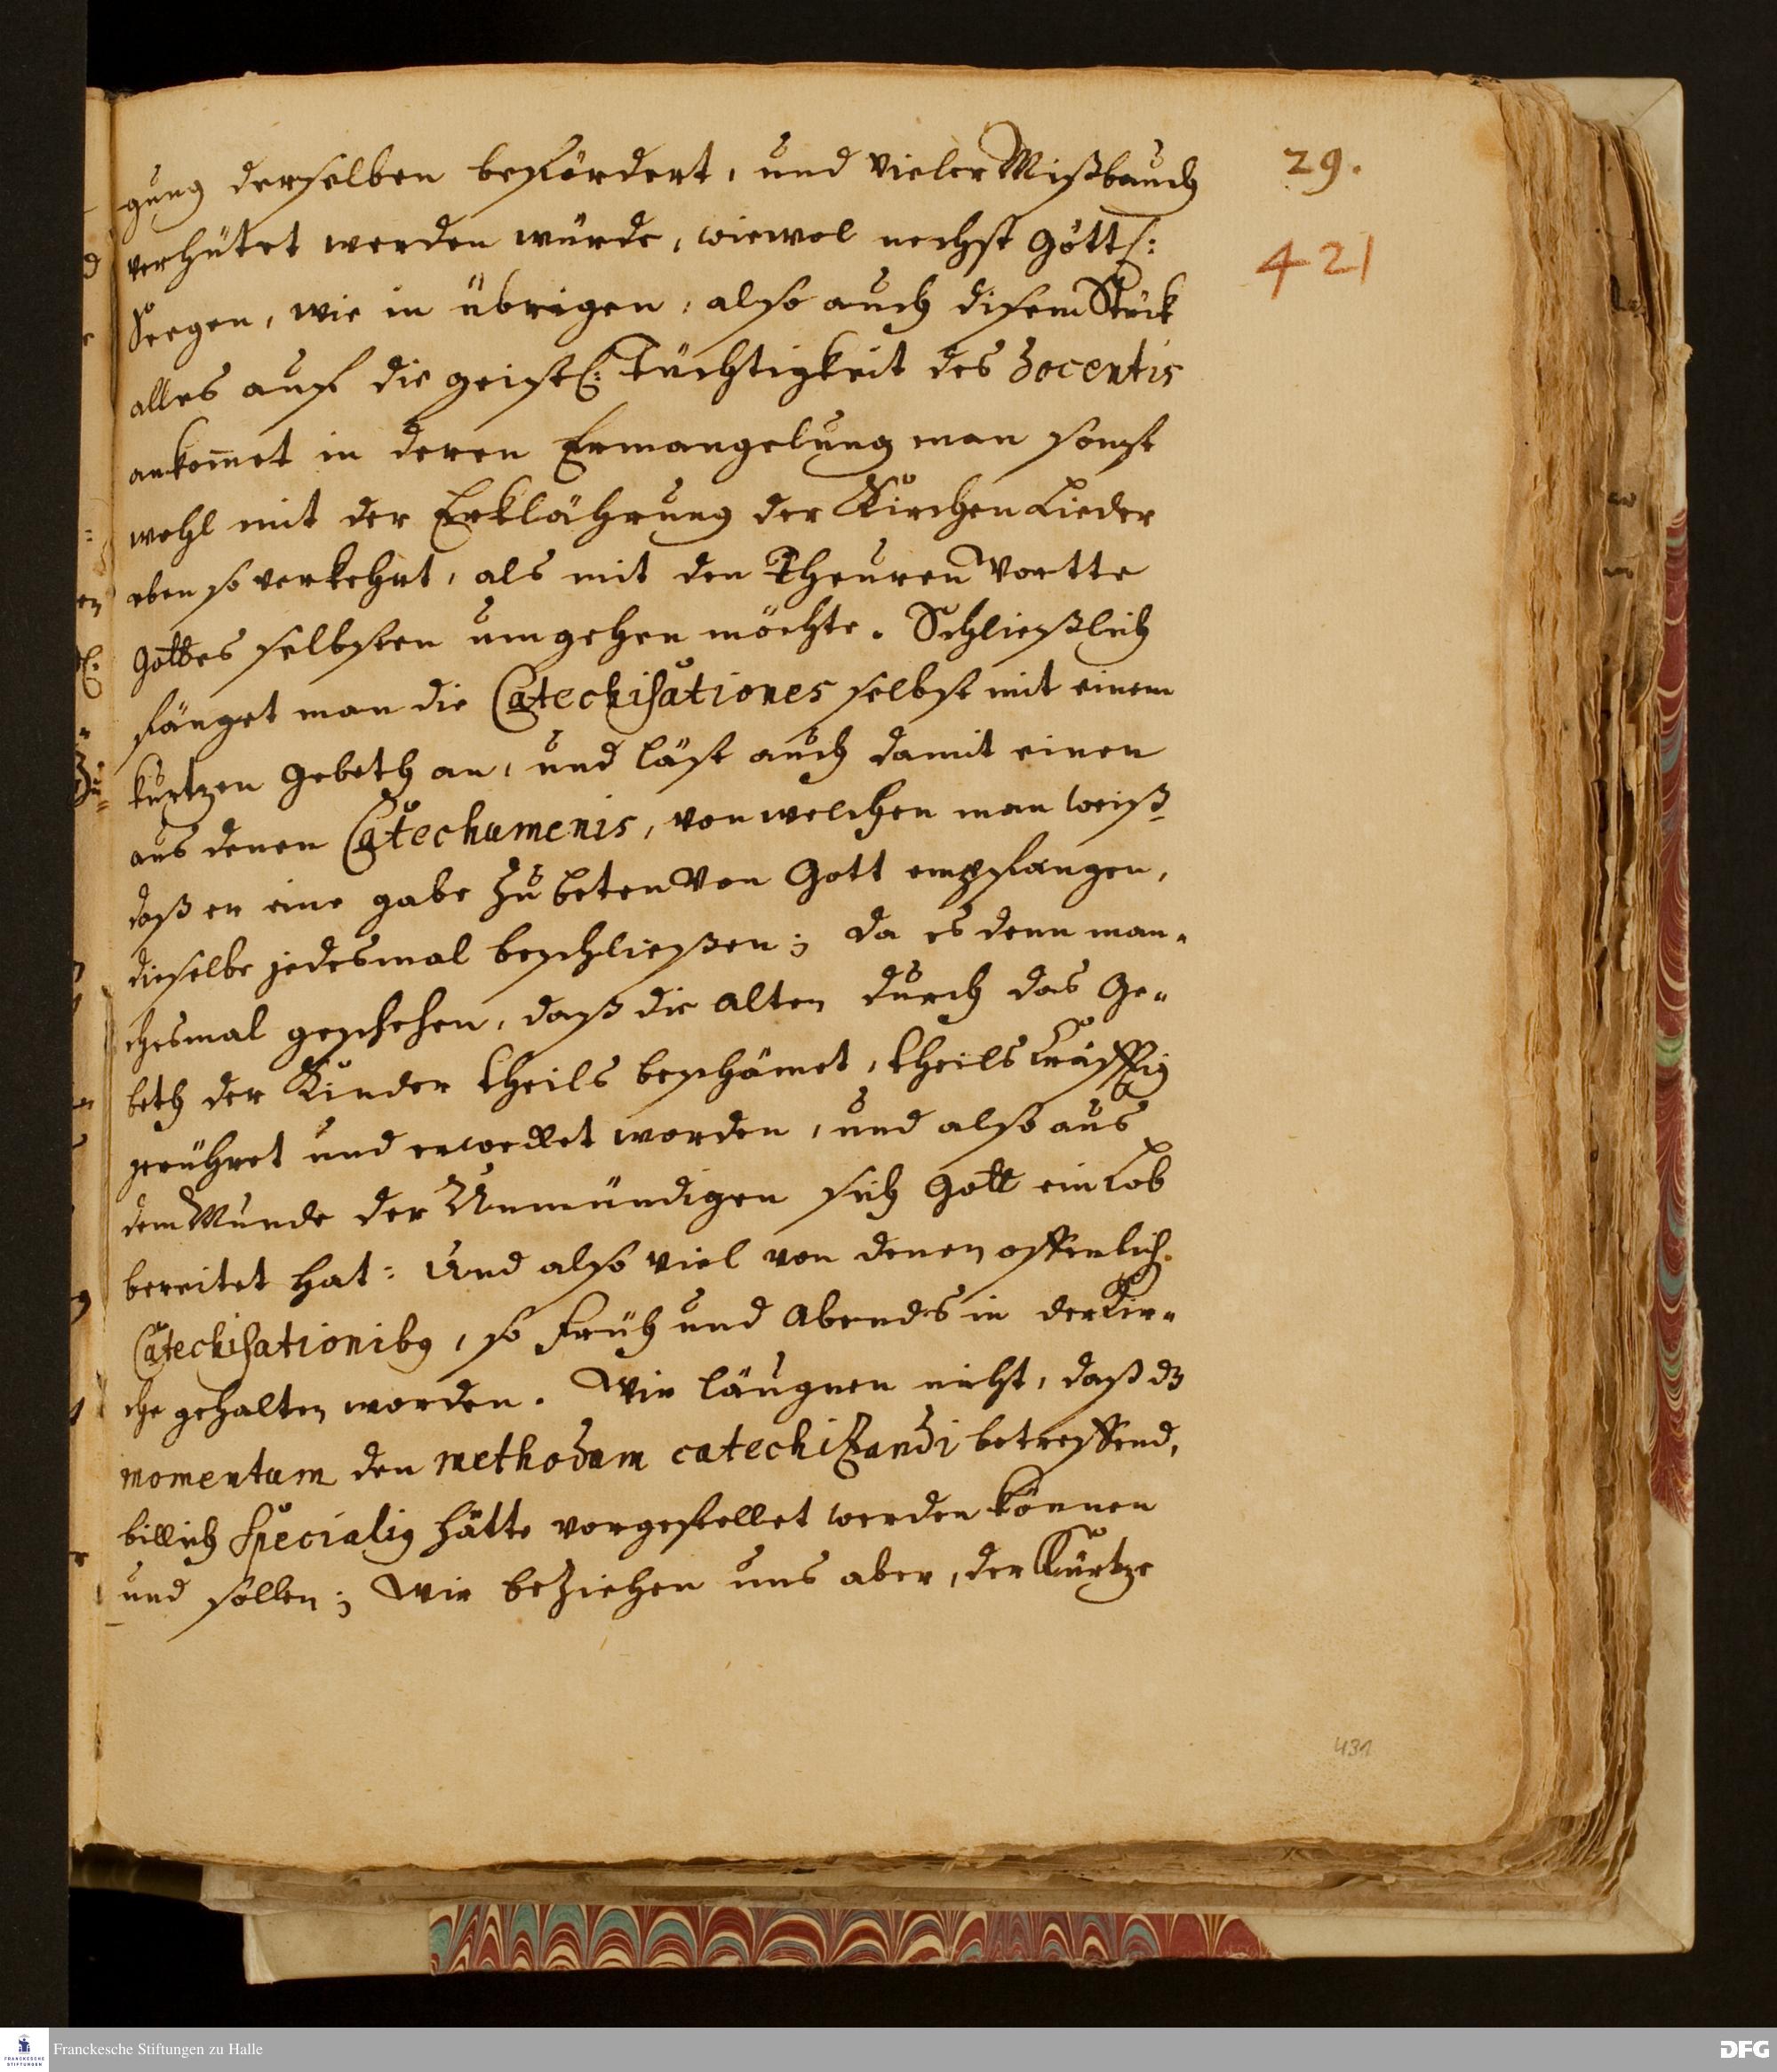 29.
421
gung derselben befördert, und vieler Mißbauch
verhütet werden würde, wiewol nechst Göttl:
Seegen, wie in übrigen, also auch disem Stück
alles auf die geistl: Tüchtigkeit des Docentis
ankom̅et in deren Ermangelung man sonst
wohl mit der Erklährung der Kirchen Lieder
eben so verkehrt, als mit den Theuren Wortte
Gottes selbsten umgehen möchte. Schließlich
fänget man die Catechisationes selbst mit einem
kurtzen Gebeth an, und läst auch damit einen
aus denen Catechumenis, von welchen man weiß
daß er eine gabe zu beten von Gott empfangen,
dieselbe jedesmal beschließen; da es denn man-
chesmal geschehen, daß die Alten durch das Ge-
beth der Kinder theils beschämet, theils kräfftig
gerühret und erwecket worden, und also aus
dem Munde der Unmündigen sich Gott ein Lob
bereitet hat: Und also viel von denen offenlich.
Catechisationibg, so Früh und Abends in der Kir-
che gehalten worden. Wir läugnen nicht, daß dz
momentum den methodum catechizandi betreffend,
billich specialig hätte vorgestellet werden können
und sollen; Wir beziehen uns aber, der Kürtze
431
Franckesche Stiftungen zu Halle
FRANCKESCHE STIFTUNGEN
DFG